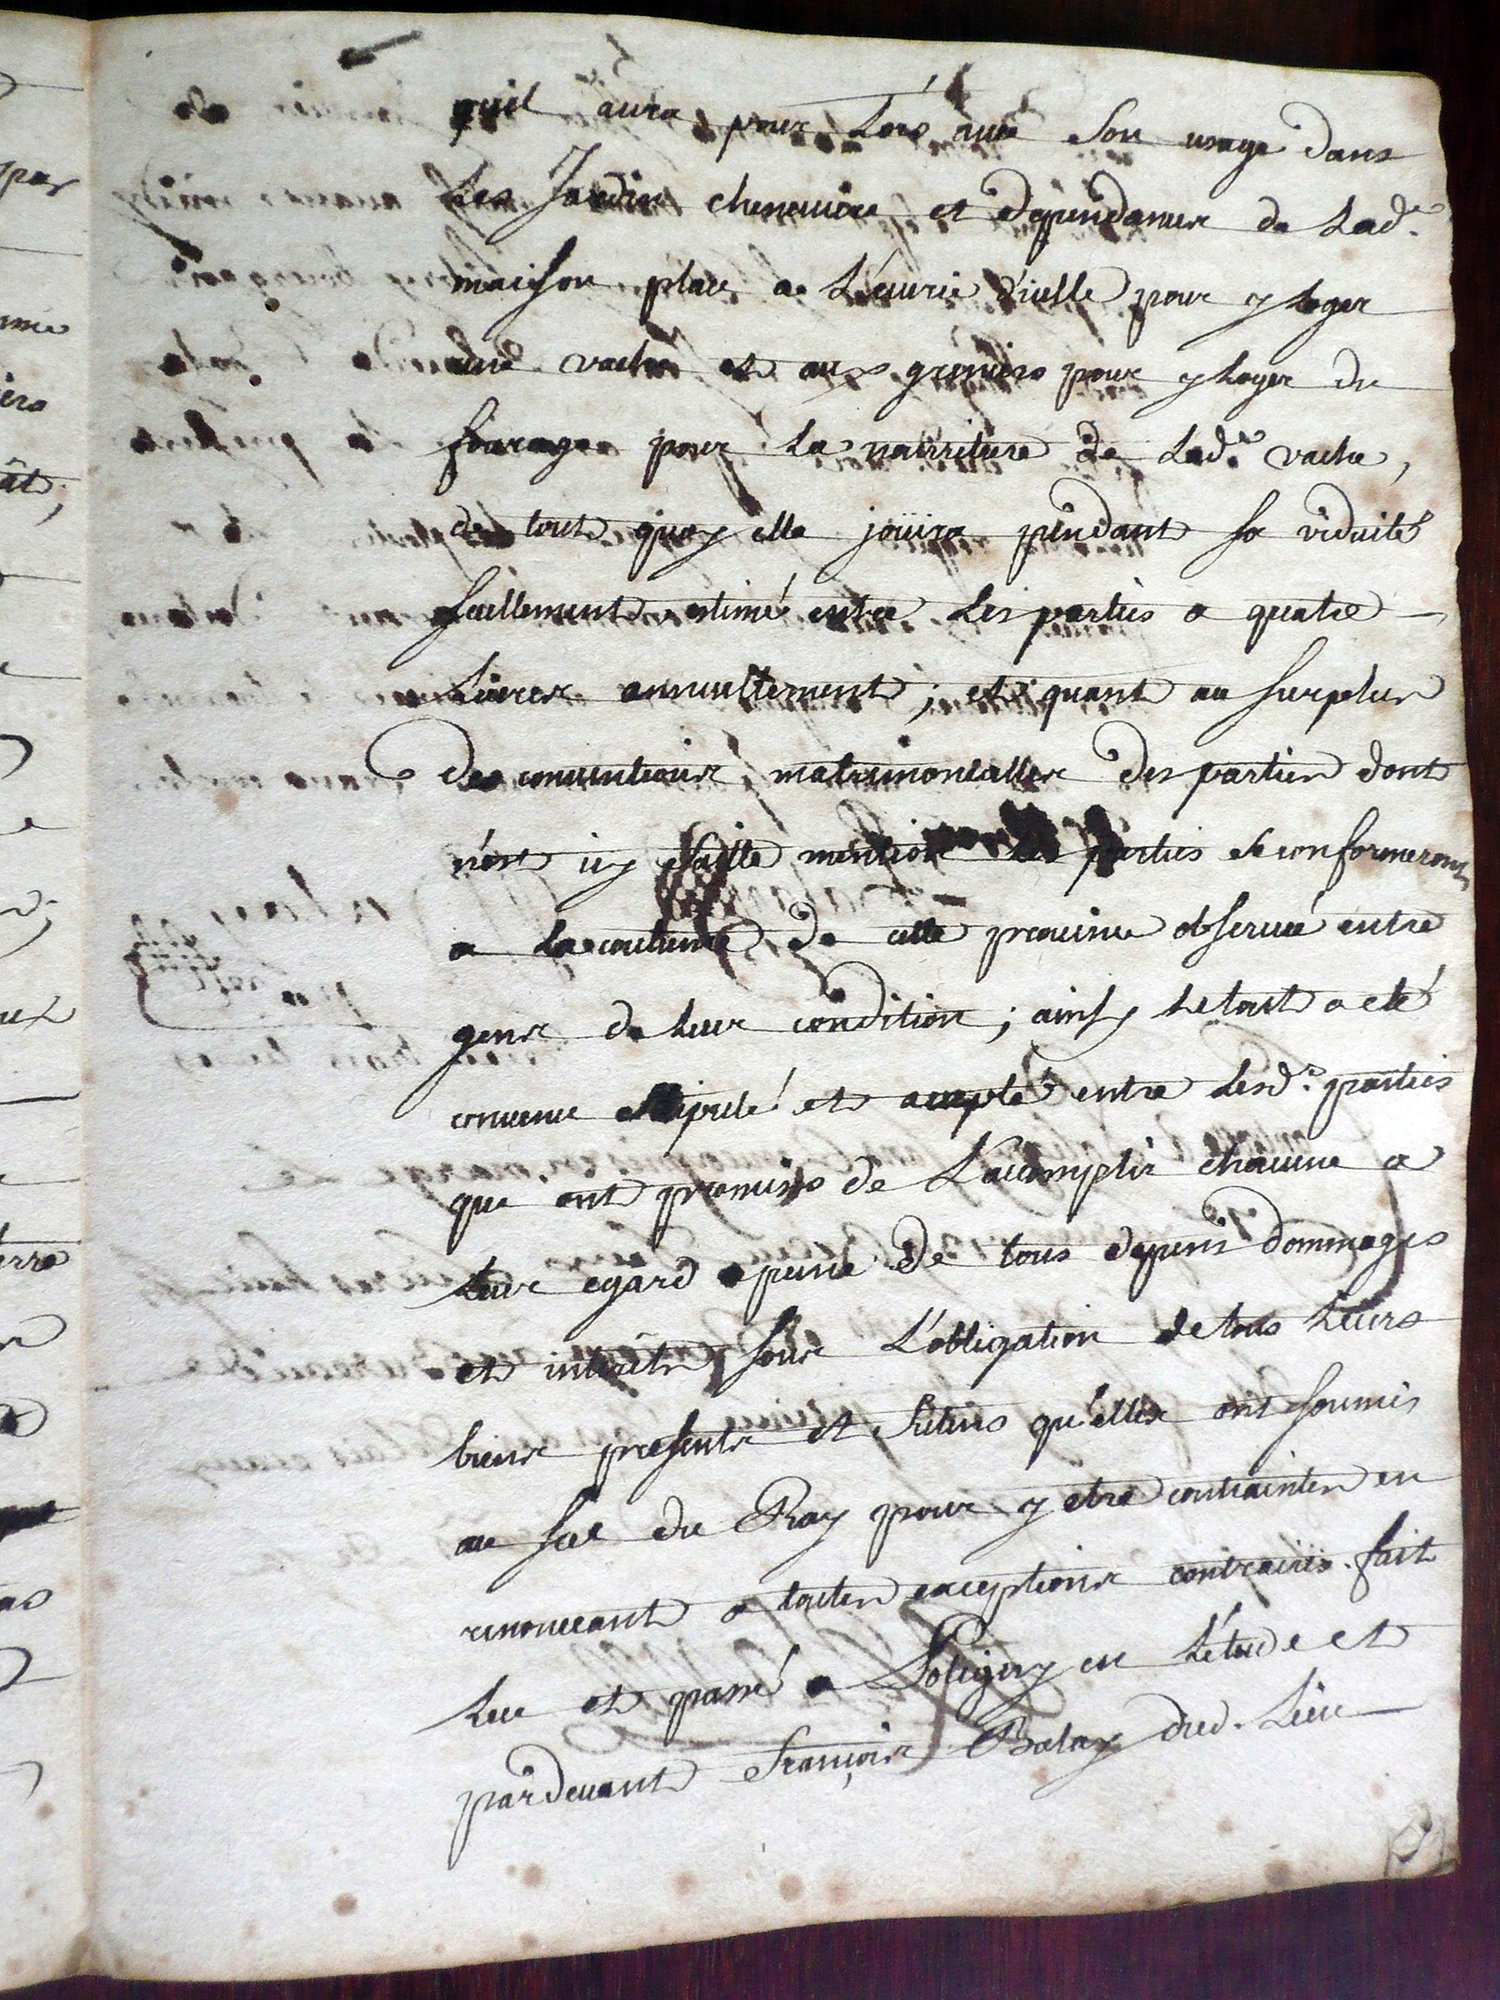 quil aura pour Lors avec Son usage dans
Les Jardin cheneviere et dépendances de Lad.e
maison place a L'écurie d'icelle pour y loger
une vache et aux greniers pour y loger du
fourage pour La nourriture de Lad.e vache,
de tout quoy elle jouira pendant sa viduité
seullement estimé entre Les parties a quatre
Livres annuellement; et quant au surplus
Des conventions matrimonialles des parties dont
n'est icy faitte mention Les parties se conformeront
a La coutume de cette province observée entre
gens de Leur condition; ainsy Le tout a eté
convenu stipulé et accepté entre Lesd.s parties
que ont promis de L'accomplir chacune a
Leur egard a peine de tous depens dommages
et interêts sous L'obligation de tous Leurs
biens presents et futurs qu'elles ont soumis
au scel du Roy pour y etre contraintes en
renonceant a toutes exceptions contraires. fait
Leu et passé a Poligny en L'étude et
pardevant François Balay dud. Lieu